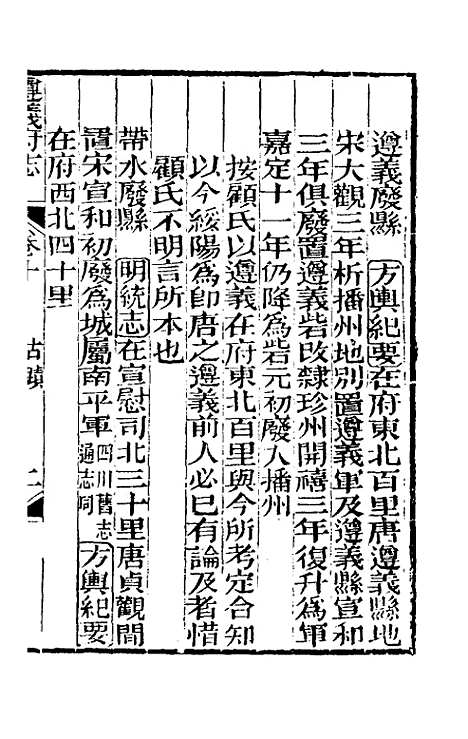 遵義廢縣 方輿紀要在府東北百里唐遵義縣地
宋大觀三年析播州地別置遵義軍及遵義縣宣和
三年俱廢置遵義砦改隸珍州開禧三年復升為軍
嘉定十一年仍降為砦元初廢入播州
按顧氏以遵義在府東北百里與今所考定合知
以今綏陽為卽唐之遵義前人必巳有論及者惜
顧氏不明言所本也
帶水廢縣 明統志在宣慰司北三十里唐貞觀間
置宋宣和初廢為城屬南平軍四川舊志通志同方輿紀要
在府西北四十里
遵義府志 卷十 古蹟 二